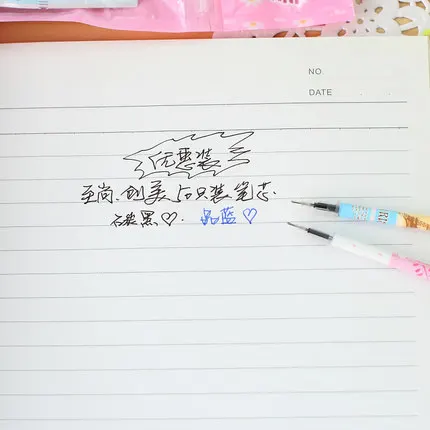 NO.
DATE
优惠装
至尚.创美50只装笔芯.
碳黑♡. 晶蓝♡